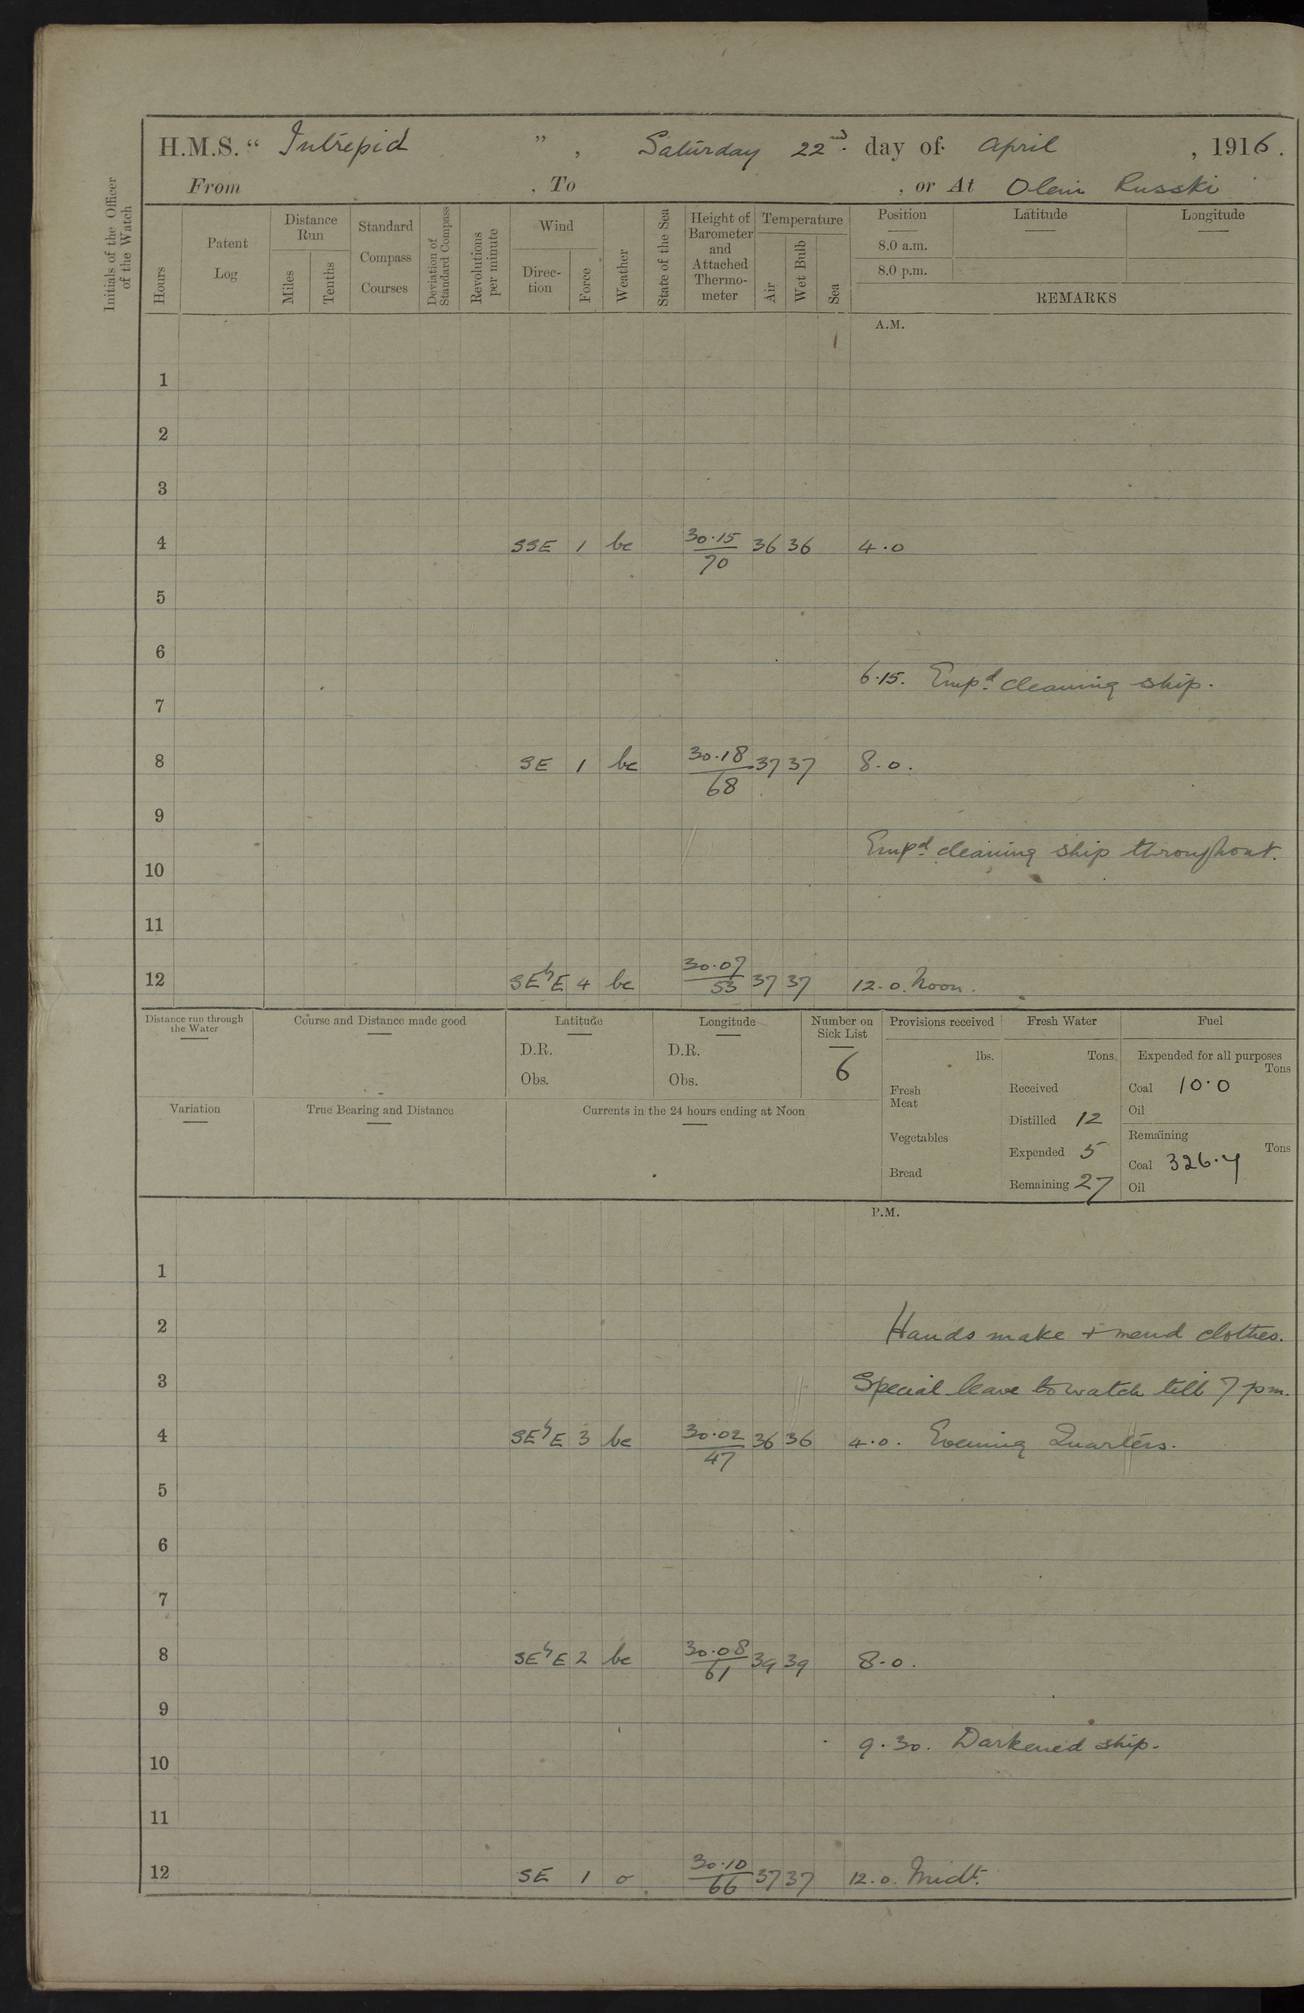 H.M.S. “ Intrepid ” , Saturday 22nd. day of April , 1916.
From , To , or At Oleni Russki
Initials of the Officer of the Watch
Hours
Patent Log
Distance Run
Miles
Tenths
Standard Compass Courses
Deviation of Standard Compass
Revolutions per minute
Wind
Direction
Force
Weather
State of the Sea
Height of Barometer and Attached Thermometer
Temperature
Air
Wet Bulb
Sea
Position Latitude Longitude
8.0 a.m.
8.0 p.m.
REMARKS
A.M.
1
2
3
4 SSE 1 bc 30.15/70 36 36 4.0
5
6
6.15. Empd. cleaning ship.
7
8 SE 1 bc 30.18/68 37 37 8.0.
9
Empd. cleaning ship throughout.
10
11
12 SEbE 4 bc 30.07/53 37 37 12.0. Noon.
Distance run through the Water
Course and Distance made good
Latitude
D.R.
Obs.
Longitude
D.R.
Obs.
Number on Sick List
6
Provisions received
lbs.
Fresh Meat
Vegetables
Bread
Fresh Water
Tons
Received
Distilled 12
Expended 5
Remaining 27
Fuel
Expended for all purposes
Tons
Coal 10.0
Oil
Remaining
Tons
Coal 326.4
Oil
Variation
True Bearing and Distance
Currents in the 24 hours ending at Noon
P.M.
1
2 Hands make + mend clothes.
3 Special leave to watch till 7 pm.
4 SEbE 3 bc 30.02/47 36 36 4.0. Evening Quarters.
5
6
7
8 SEbE 2 bc 30.08/61 39 39 8.0.
9
9.30. Darkened ship.
10
11
12 SE 1 o 30.10/66 37 37 12.0. Midt.